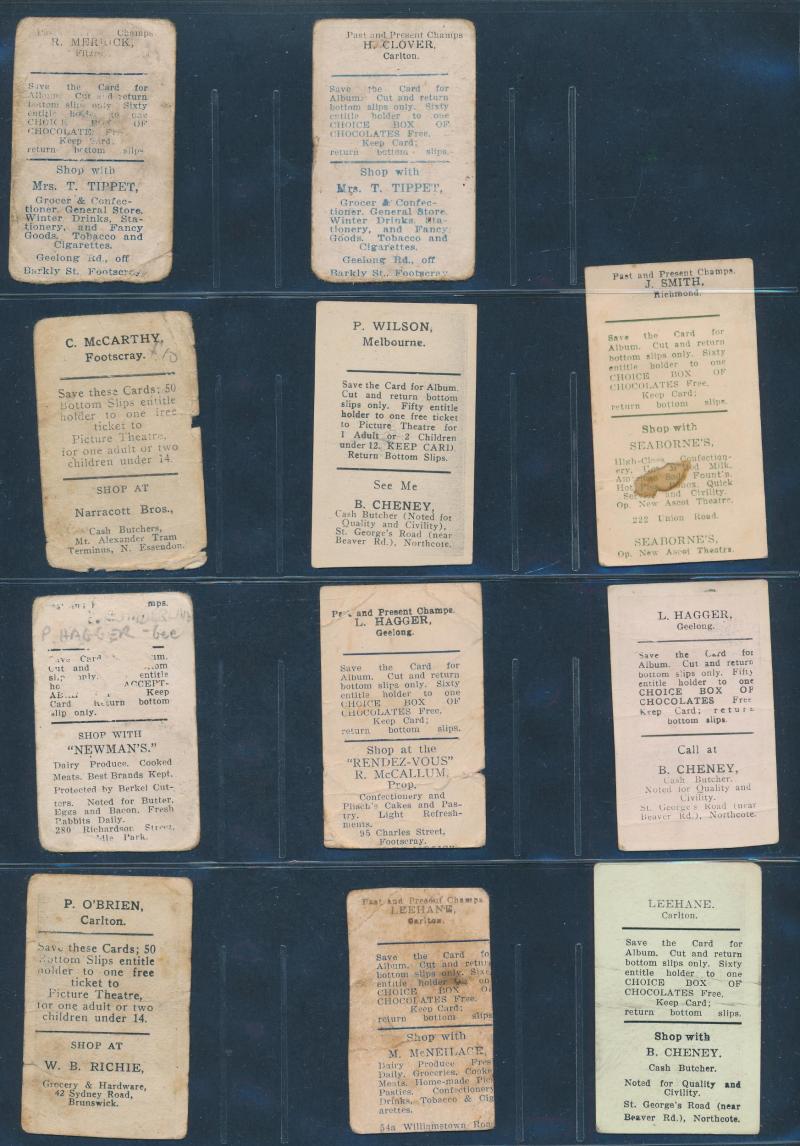 Champs
R. MERRICK,
Save the Card for
Album. Cut and return
bottom slips only Sixty
entitle to one
CHOICE BOX OF
CHOCOLATES
Keep Card;
return bottom slips
Shop with
Mrs. T. TIPPET,
Grocer & Confec-
tioner. General Store.
Winter Drinks, Sta-
tionery, and Fancy
Goods. Tobacco and
Cigarettes.
Geelong Rd., off
Barkly St. Footscray
Past and Present Champs
H. CLOVER,
Carlton.
Save the Card for
Album. Cut and return
bottom slips only. Sixty
entitle holder to one
CHOICE BOX OF
CHOCOLATES Free.
Keep Card;
return bottom slips.
Shop with
Mrs. T. TIPPET,
Grocer & Confec-
tioner. General Store.
Winter Drinks, Sta-
tionery, and Fancy
Goods. Tobacco and
Cigarettes.
Geelong Rd., off
Barkly St., Footscray
C. McCARTHY,
Footscray.
Save these Cards; 50
Bottom Slips entitle
holder to one free
ticket to
Picture Theatre,
for one adult or two
children under 14.
SHOP AT
Narracott Bros.,
Cash Butchers,
Mt. Alexander Tram
Terminus, N. Essendon.
P. WILSON,
Melbourne.
Save the Card for Album.
Cut and return bottom
slips only. Fifty entitle
holder to one free ticket
to Picture Theatre for
1 Adult or 2 Children
under 12. KEEP CARD
Return Bottom Slips.
See Me
B. CHENEY,
Cash Butcher (Noted for
Quality and Civility),
St. George's Road (near
Beaver Rd.), Northcote.
Past and Present Champs.
J. SMITH,
Richmond.
Save the Card for
Album. Cut and return
bottom slips only. Sixty
entitle holder to one
CHOICE BOX OF
CHOCOLATES Free.
Keep Card;
return bottom slips.
Shop with
SEABORNE'S,
High-Class Confection-
ery. Milk.
Fount'n.
Quick
and Civility.
Op. New Ascot Theatre.
222 Union Road.
SEABORNE'S,
Op. New Ascot Theatre.
P. HAGGER - Gee
Save Card
Cut and
only. entitle
ACCEPT-
Keep
Card Return bottom
slip only.
SHOP WITH
"NEWMAN'S."
Dairy Produce. Cooked
Meats. Best Brands Kept.
Protected by Berkel Cut-
ters. Noted for Butter,
Eggs and Bacon. Fresh
Rabbits Daily.
280 Richardson Street,
Park.
Past and Present Champs.
L. HAGGER,
Geelong.
Save the Card for
Album. Cut and return
bottom slips only. Sixty
entitle holder to one
CHOICE BOX OF
CHOCOLATES Free.
Keep Card;
return bottom slips.
Shop at the
"RENDEZ-VOUS"
R. McCALLUM,
Prop.
Confectionery and
Cakes and Pas-
try. Light Refresh-
ments.
95 Charles Street,
Footscray.
L. HAGGER,
Geelong.
Save the Card for
Album. Cut and return
bottom slips only. Fifty
entitle holder to one
CHOICE BOX OF
CHOCOLATES Free
Keep Card; return
bottom slips.
Call at
B. CHENEY,
Cash Butcher.
Noted for Quality and
Civility.
St. George's Road (near
Beaver Rd.), Northcote.
P. O'BRIEN,
Carlton.
Save these Cards; 50
Bottom Slips entitle
holder to one free
ticket to
Picture Theatre,
for one adult or two
children under 14.
SHOP AT
W. B. RICHIE,
Grocery & Hardware,
42 Sydney Road,
Brunswick.
Past and Present Champs
LEEHANE,
Carlton.
Save the Card fo
Album. Cut and retur
bottom slips only. Sixt
entitle holder to on
CHOICE BOX O
CHOCOLATES Free.
Keep Card;
return bottom slips
Shop with
M. McNEILAGE,
Dairy Produce Fres
Daily. Groceries, Cooke
Meats. Home-made Pies
Pasties. Confectionery
Drinks, Tobacco & Cig
arettes.
54a Williamstown Roa
LEEHANE.
Carlton.
Save the Card for
Album. Cut and return
bottom slips only. Sixty
entitle holder to one
CHOICE BOX OF
CHOCOLATES Free.
Keep Card;
return bottom slips.
Shop with
B. CHENEY.
Cash Butcher.
Noted for Quality and
Civility.
St. George's Road (near
Beaver Rd.), Northcote.